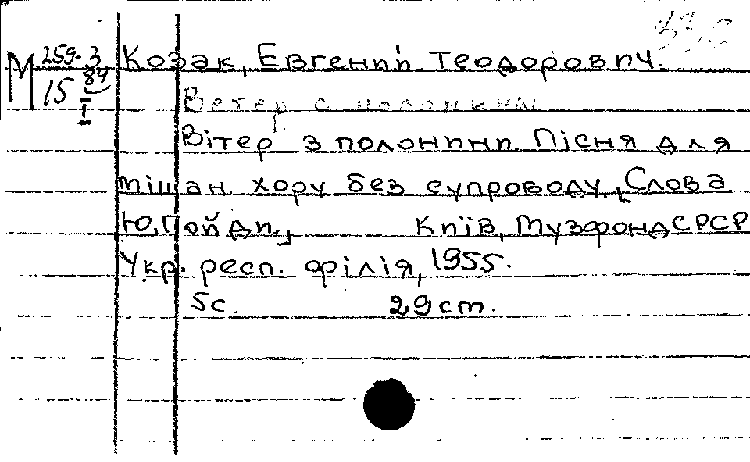 М 259-3
84
15 I
Козак, Евгений Теодорович.
Ветер с полонины
Вітер з полонини. Пісня для
мішан. хору без супроводу. [Слова
Ю. Гойди.] Київ, Музфонд СРСР
Укр. респ. філія, 1955.
5 с. 29 см.